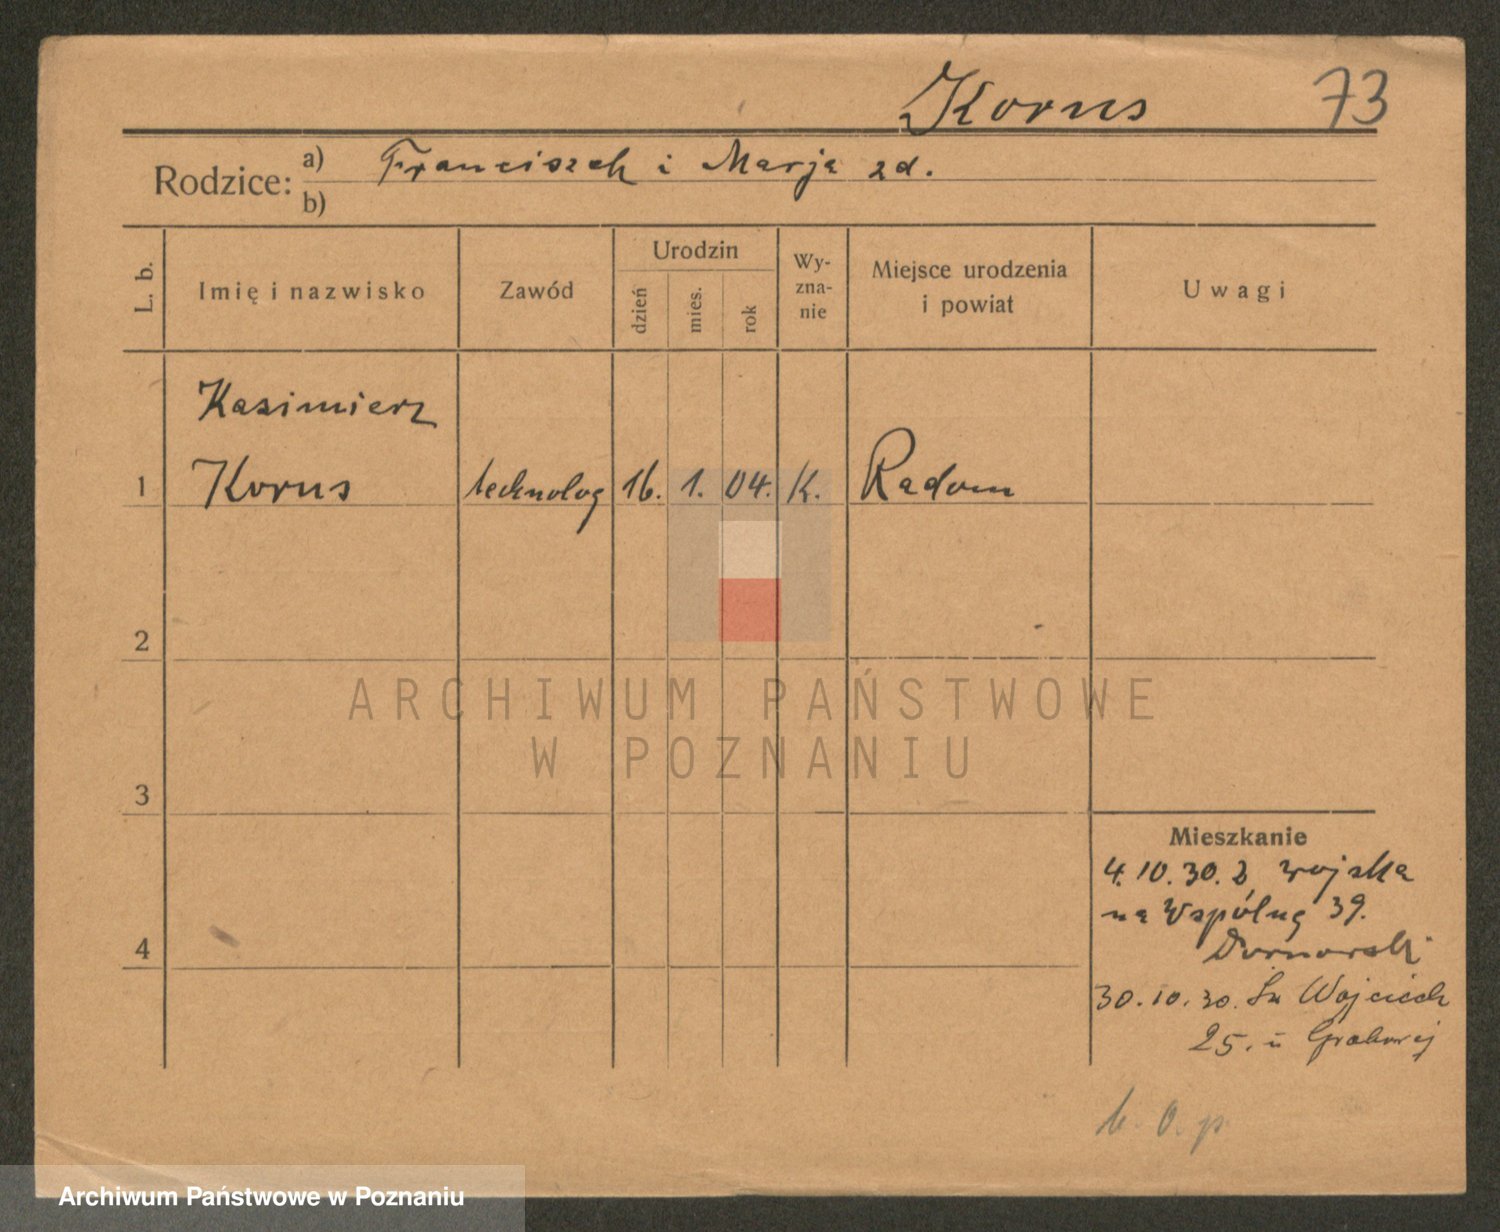 Korus 73
Rodzice: a) Franciszek i Marja zd.
b)
L. b.
Imię i nazwisko
Zawód
Urodzin
dzień
mies.
rok
Wy-
zna-
nie
Miejsce urodzenia
i powiat
Uwagi
Kazimierz
1 Korus technolog 16. 1. 04. K. Radom
2
3
4
Mieszkanie
4.10.30. z wojska
na Wspólną 39.
30.10.30. Św Wojciech
25. u
b. o. p.
ARCHIWUM PAŃSTWOWE
W POZNANIU
Archiwum Państwowe w Poznaniu